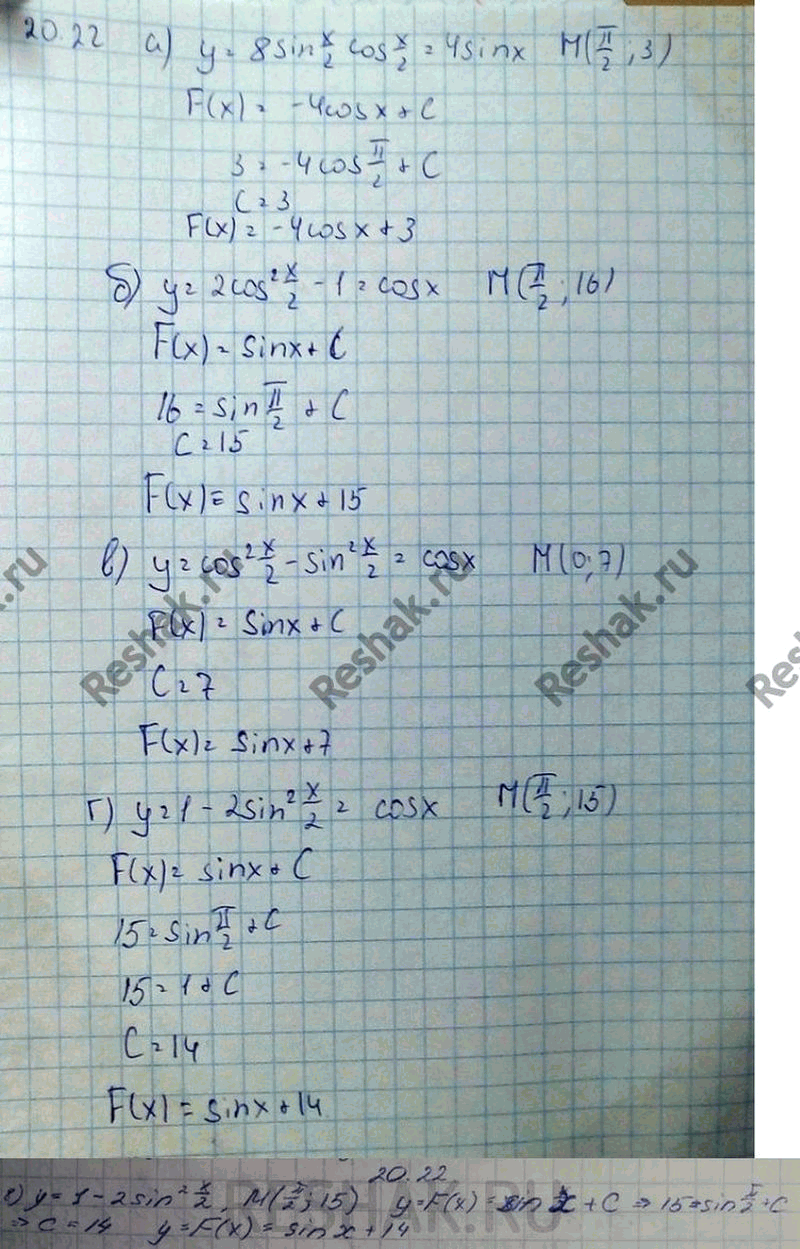 20.22 а) y = 8 sin x/2 cos x/2 = 4 sin x M(π/2 ; 3)
F(x) = -4cos x + C
3 = -4 cos π/2 + C
C = 3
F(x) = -4cos x + 3
б) y = 2cos² x/2 - 1 = cos x M(π/2 ; 16)
F(x) = sin x + C
16 = sin π/2 + C
C = 15
F(x) = sin x + 15
в) y = cos² x/2 - sin² x/2 = cos x M(0; 7)
F(x) = sin x + C
C = 7
F(x) = sin x + 7
г) y = 1 - 2sin² x/2 = cos x M(π/2 ; 15)
F(x) = sin x + C
15 = sin π/2 + C
15 = 1 + C
C = 14
F(x) = sin x + 14
Reshak.ru
Reshak.ru
Reshak.ru
20.22
г) y = 1 - 2 sin² x/2, M(π/2; 15) y = F(x) = sin x + C ⇒ 15 = sin π/2 + C
⇒ C = 14 y = F(x) = sin x + 14
RESHAK.RU